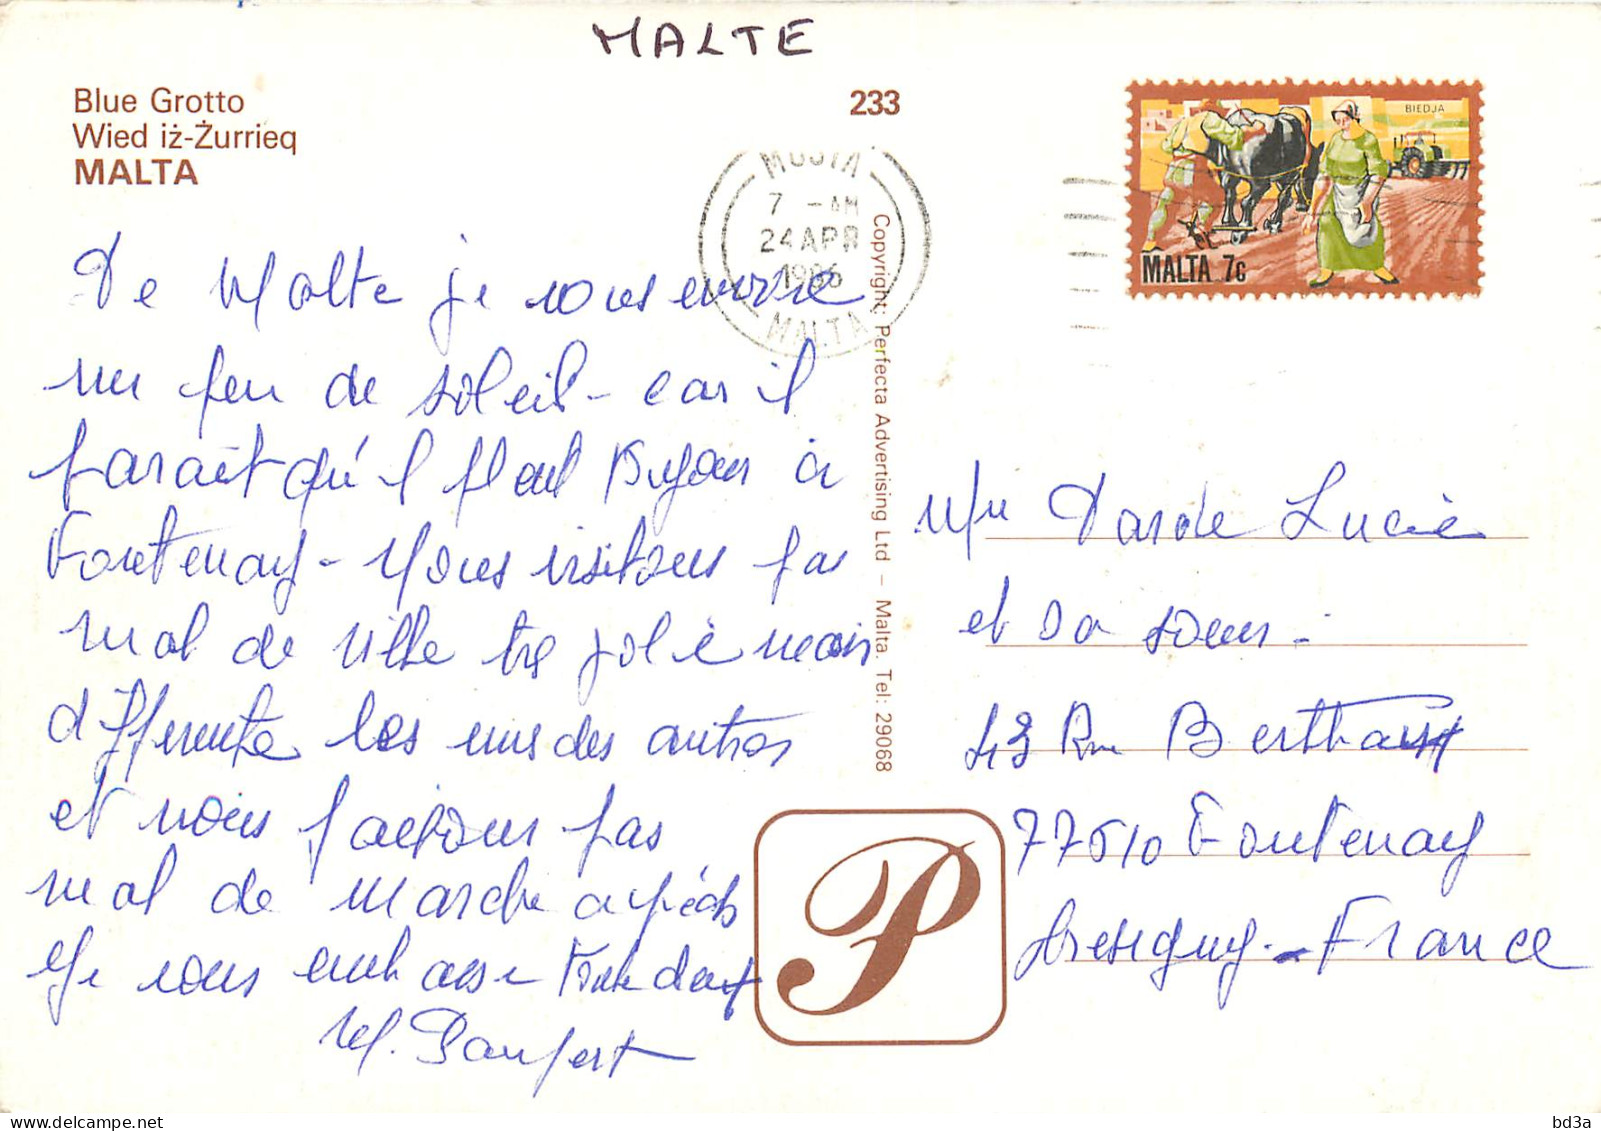 MALTE
Blue Grotto
Wied iż-Żurrieq
MALTA
233
MOSTA
7 - AM
24 APR
1986
MALTA
BIEDJA
MALTA 7c
De Malte je vous envoie
un peu de soleil - car il
parait qu'il pleut toujours à
Fontenay - Nous visitons pas
mal de ville très jolie mais
differente les unes des autres
et nous faisons pas
mal de marche a pieds
Je vous embrasse
Copyright: Perfecta Advertising Ltd – Malta. Tel: 29068
Mme Darde Lucie
et sa soeur -
43 Rue Berthaux
77610 Fontenay
Tresigny - France
P
delcampe.net
bd3a